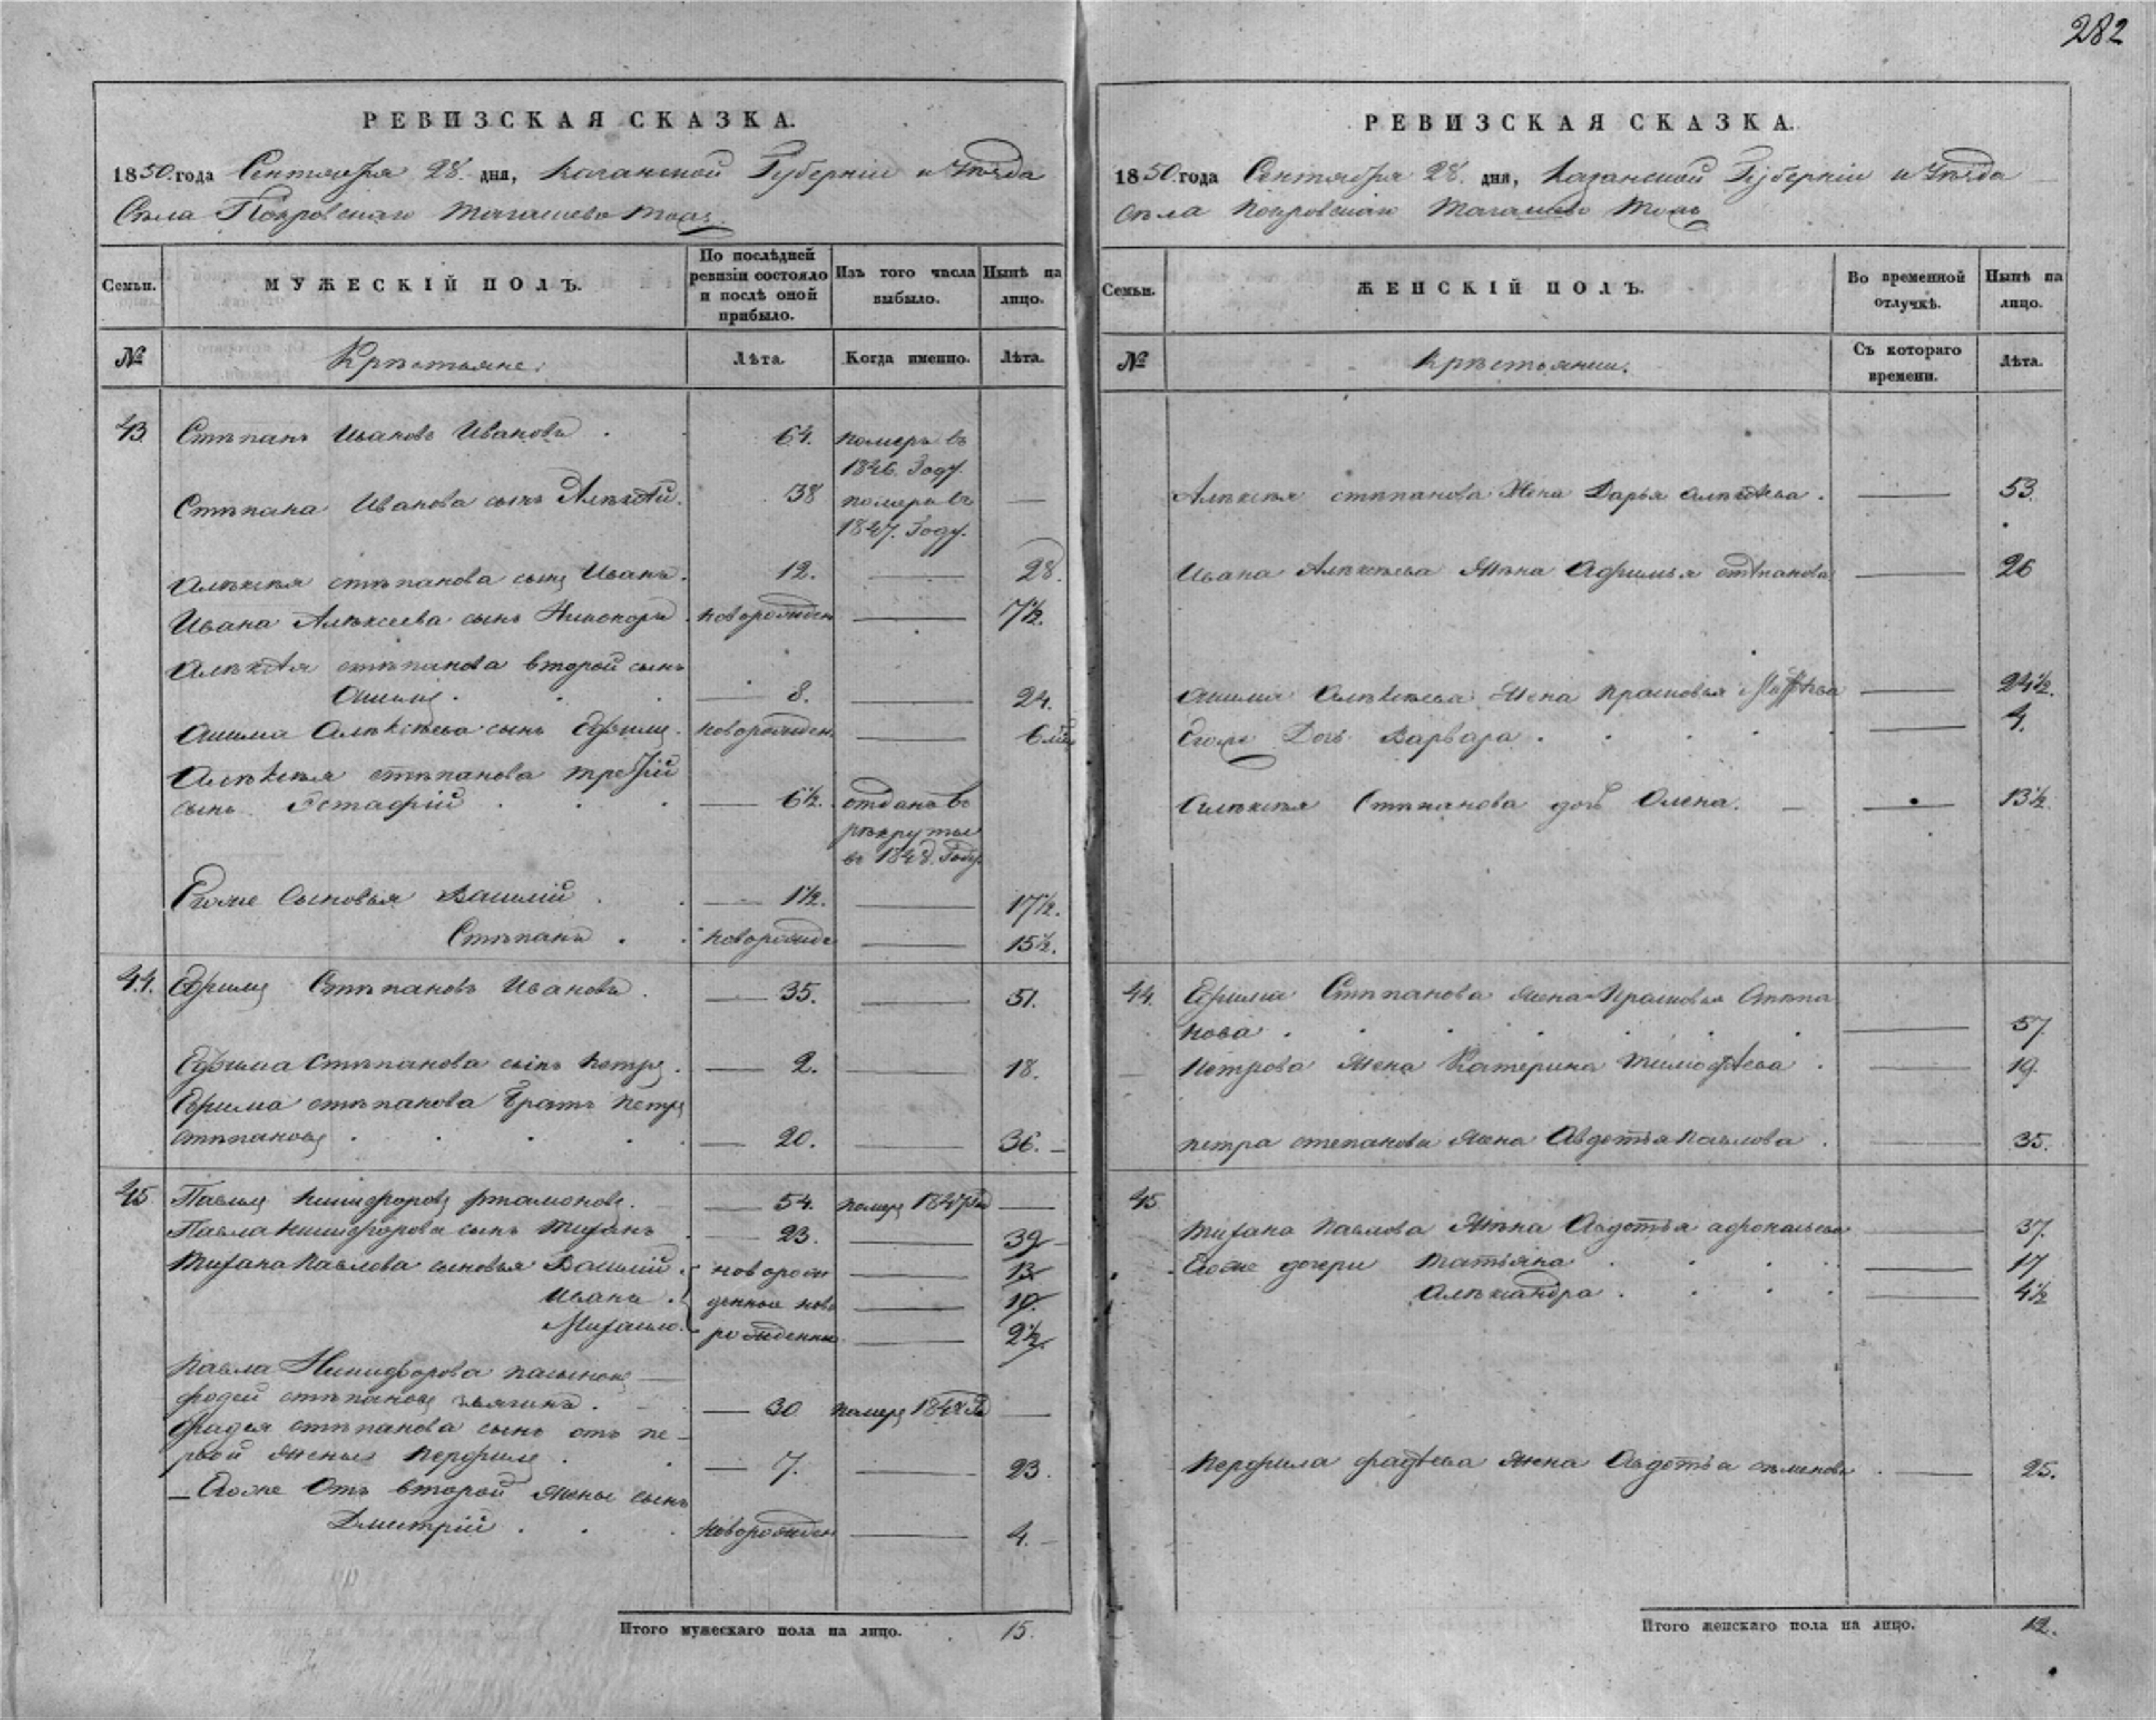 282
РЕВИЗСКАЯ СКАЗКА.
1850 года Сентября 28. дня, Казанской Губерніи и Уѣзда
Села Покровскаго Тагашево тожъ.
Семьи.
МУЖЕСКІЙ ПОЛЪ.
По послѣдней ревизіи состояло и послѣ оной прибыло.
Изъ того числа выбыло.
Нынѣ на лицо.
№
Крѣстьяне.
Лѣта.
Когда именно.
Лѣта.
43 Стѣпанъ Ивановъ Ивановъ . 64. померъ въ
1846. Году.
Стѣпана Иванова сынъ Алѣксѣй. 38 померъ въ —
1847. Году.
Алѣксѣя стѣпанова сынъ Иванъ. 12. — 28.
Ивана Алѣксеева сынъ Никоноръ новорожден — 7½.
Алѣксѣя стѣпанова второй сынъ
Акимъ . — 8. — 24.
Акима Алѣксѣева сынъ Ефимъ. новорожден. — 6
Алѣксѣя стѣпанова третій
сынъ Естафій . — 6½. отданъ въ
рѣкруты
въ 1848. Году
Егоже Сыновья Василій . — 1½. — 17½.
Стѣпанъ . новорожде — 15½.
44. Ефимъ Стѣпановъ Ивановъ . — 35. — 51.
Ефима Стѣпанова сынъ петръ . — 2. — 18.
Ефима стѣпанова братъ петръ
стѣпановъ . — 20. — 36. —
45 Павелъ никифоровъ ртамоновъ. — 54. померъ 1847 —
Павла никифорова сынъ тиханъ — 23. — 39
Тихана павлова сыновья Василій новорож — 13
Иванъ . денные ново — 10.
Михаило. рожденны — 2½.
павла Никифорова пасынокъ —
фадей стѣпановъ . — 30 померъ 184 —
Фадея стѣпанова сынъ отъ пе-
рвой жены перфилъ . — 7. — 23.
— Егоже Отъ второй жены сынъ
Дмитрій . новорожден — 4. —
Итого мужескаго пола на лицо. 15.
РЕВИЗСКАЯ СКАЗКА.
1850 года Сентября 28. дня, Казанской Губерніи и Уѣзда
села покровскаго Тагашево тожъ
Семьи.
ЖЕНСКІЙ ПОЛЪ.
Во временной отлучкѣ.
Нынѣ на лицо.
№
Крѣстьянки.
Съ котораго времени.
Лѣта.
Алѣксѣя стѣпанова Жена Дарья алѣксѣева . — 53.
Ивана Алѣксѣева Жѣна Афимья стѣпанова — 26
Акима Алѣксѣева Жена прасковья — 24½.
Егоже Дочь Варвара . — 4.
Алѣксѣя Стѣпанова дочь Олена. — 13½.
44. Ефима Стѣпанова жена Прасковья Стѣпа
нова . — 57.
петрова жена Катерина тимофѣева . — 19.
петра степанова жена Авдотья павлова . — 35.
45
тихана павлова Жѣна Авдотья афонасьева — 37.
Егоже дочери татьяна . — 17
Алѣксандра . — 4½
перфила фадѣева жена Авдотья семенова . — 25.
Итого женскаго пола на лицо. 12.